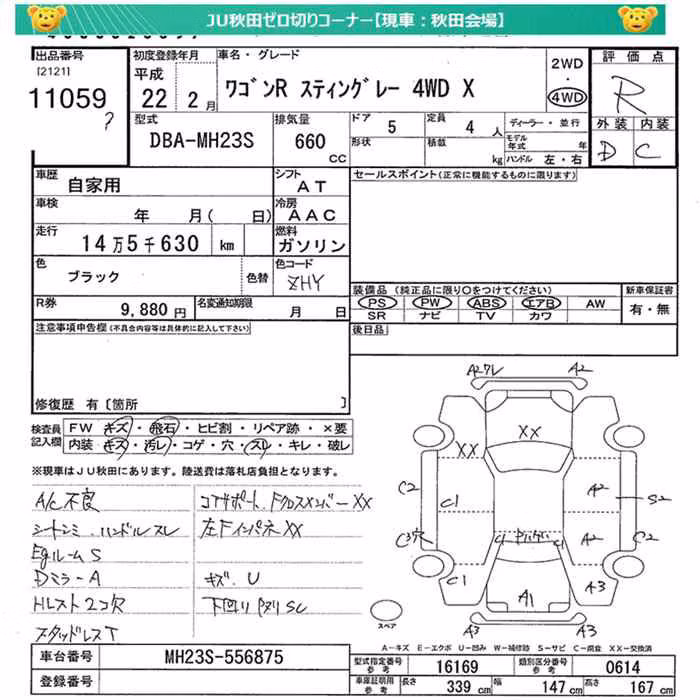 JU秋田ゼロ切りコーナー【現車：秋田会場】
出品番号 初度登録年月 車名・グレード 2WD・4WD 評価点
[2121] 11059 ?
平成 22 2月 ワゴンR スティングレー 4WD X R
型式 DBA-MH23S 排気量 660 CC ドア 5 定員 4人 ディーラー・並行 外装 内装
形状 積載 kg モデル年式 年 ハンドル 左・右 D C
車歴 自家用 シフト AT セールスポイント(正常に機能するものに限ります)
車検 年 月( 日) 冷房 AAC
走行 14万5千630 km 燃料 ガソリン
色 ブラック 色替 色コード ZHY
装備品 (純正品に限り○をつけてください) 新車保証書
R券 9,880円 名変通知期限 月 日 PS PW ABS エアB AW 有・無
SR ナビ TV カワ
注意事項申告欄(不具合内容等は具体的に記入して下さい) 後日品
修復歴 有〔箇所 〕
検査員記入欄 FW キズ・飛石・ヒビ割・リペア跡・×要
内装 キズ・汚レ・コゲ・穴・スレ・キレ・破レ
※現車はJU秋田にあります。陸送費は落札店負担となります。
A/C不良 コアサポート.FクロスメンバーXX
シートシミ.ハンドルスレ 左FインパネXX
EgルームS
DミラーA キズ.U
Hレスト2コ欠 下回りPヌリSC
スタッドレスT
A2ワレ A2
XX XX
C2 C1 A2 S2
C3穴 C1 C1 A2
C1 A1 A3
スペア A3 A3
A-キズ E-エクボ U-凹み W-補修跡 S-サビ C-腐食 XX-交換済
車台番号 MH23S-556875 型式指定番号 参考 16169 類別区分番号 参考 0614
登録番号 車庫証明用 参考 長さ 339cm 幅 147cm 高さ 167cm